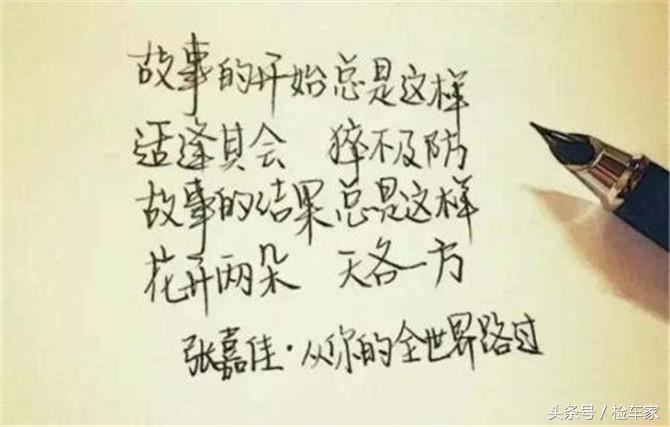 故事的开始总是这样
适逢其会 猝不及防
故事的结果总是这样
花开两朵 天各一方
张嘉佳·从你的全世界路过
头条号/检车家